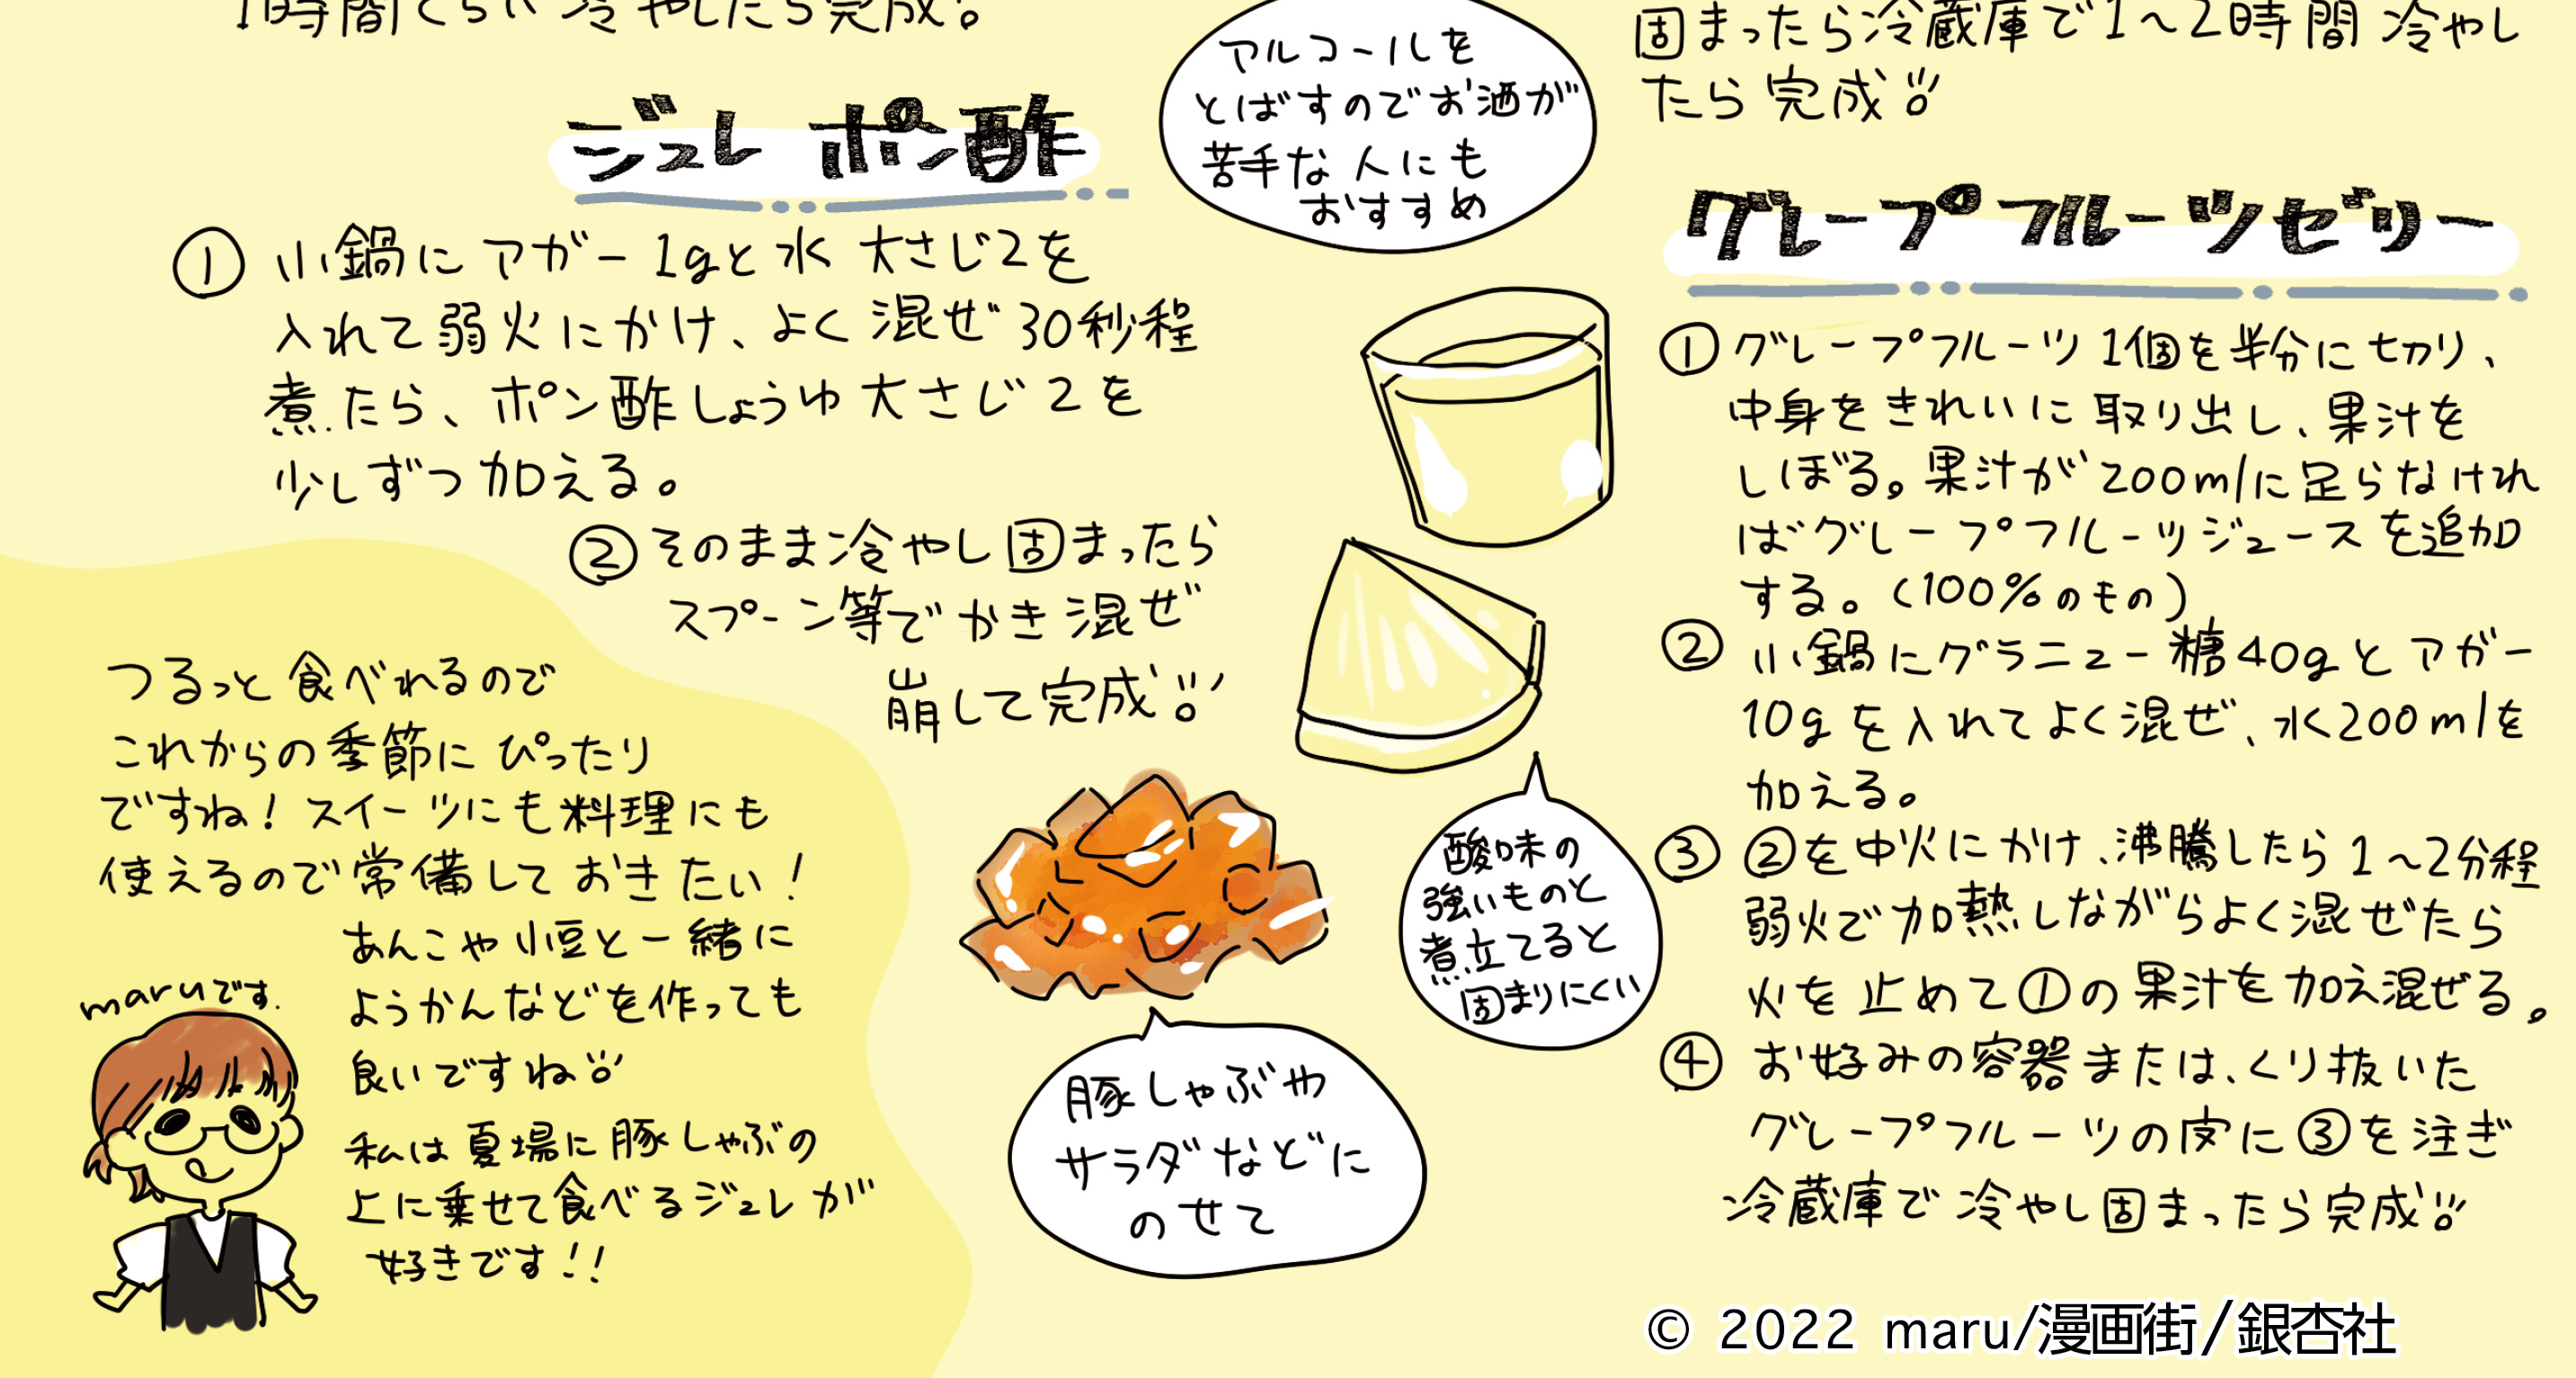 1時間くらい冷やしたら完成!
ジュレポン酢
① 小鍋にアガー1gと水 大さじ2を
入れて弱火にかけ、よく混ぜ30秒程
煮たら、ポン酢しょうゆ大さじ2を
少しずつ加える。
② そのまま冷やし固まったら
スプーン等でかき混ぜ
崩して完成!!
つるっと食べれるので
これからの季節にぴったり
ですね!スイーツにも料理にも
使えるので常備しておきたい!
あんこや小豆と一緒に
ようかんなどを作っても
良いですね!!
私は夏場に豚しゃぶの
上に乗せて食べるジュレが
好きです!!
maruです.
アルコールを
とばすのでお酒が
苦手な人にも
おすすめ
豚しゃぶや
サラダなどに
のせて
固まったら冷蔵庫で1〜2時間冷やし
たら完成!!
グレープフルーツゼリー
① グレープフルーツ1個を半分に切り、
中身をきれいに取り出し、果汁を
しぼる。果汁が200mlに足らなけれ
ばグレープフルーツジュースを追加
する。(100%のもの)
② 小鍋にグラニュー糖40gとアガー
10gを入れてよく混ぜ、水200mlを
加える。
③ ②を中火にかけ、沸騰したら1〜2分程
弱火で加熱しながらよく混ぜたら
火を止めて①の果汁を加え混ぜる。
④ お好みの容器または、くり抜いた
グレープフルーツの皮に③を注ぎ
冷蔵庫で冷やし固まったら完成!!
酸味の
強いものと
煮立てると
固まりにくい
© 2022 maru/漫画街/銀杏社